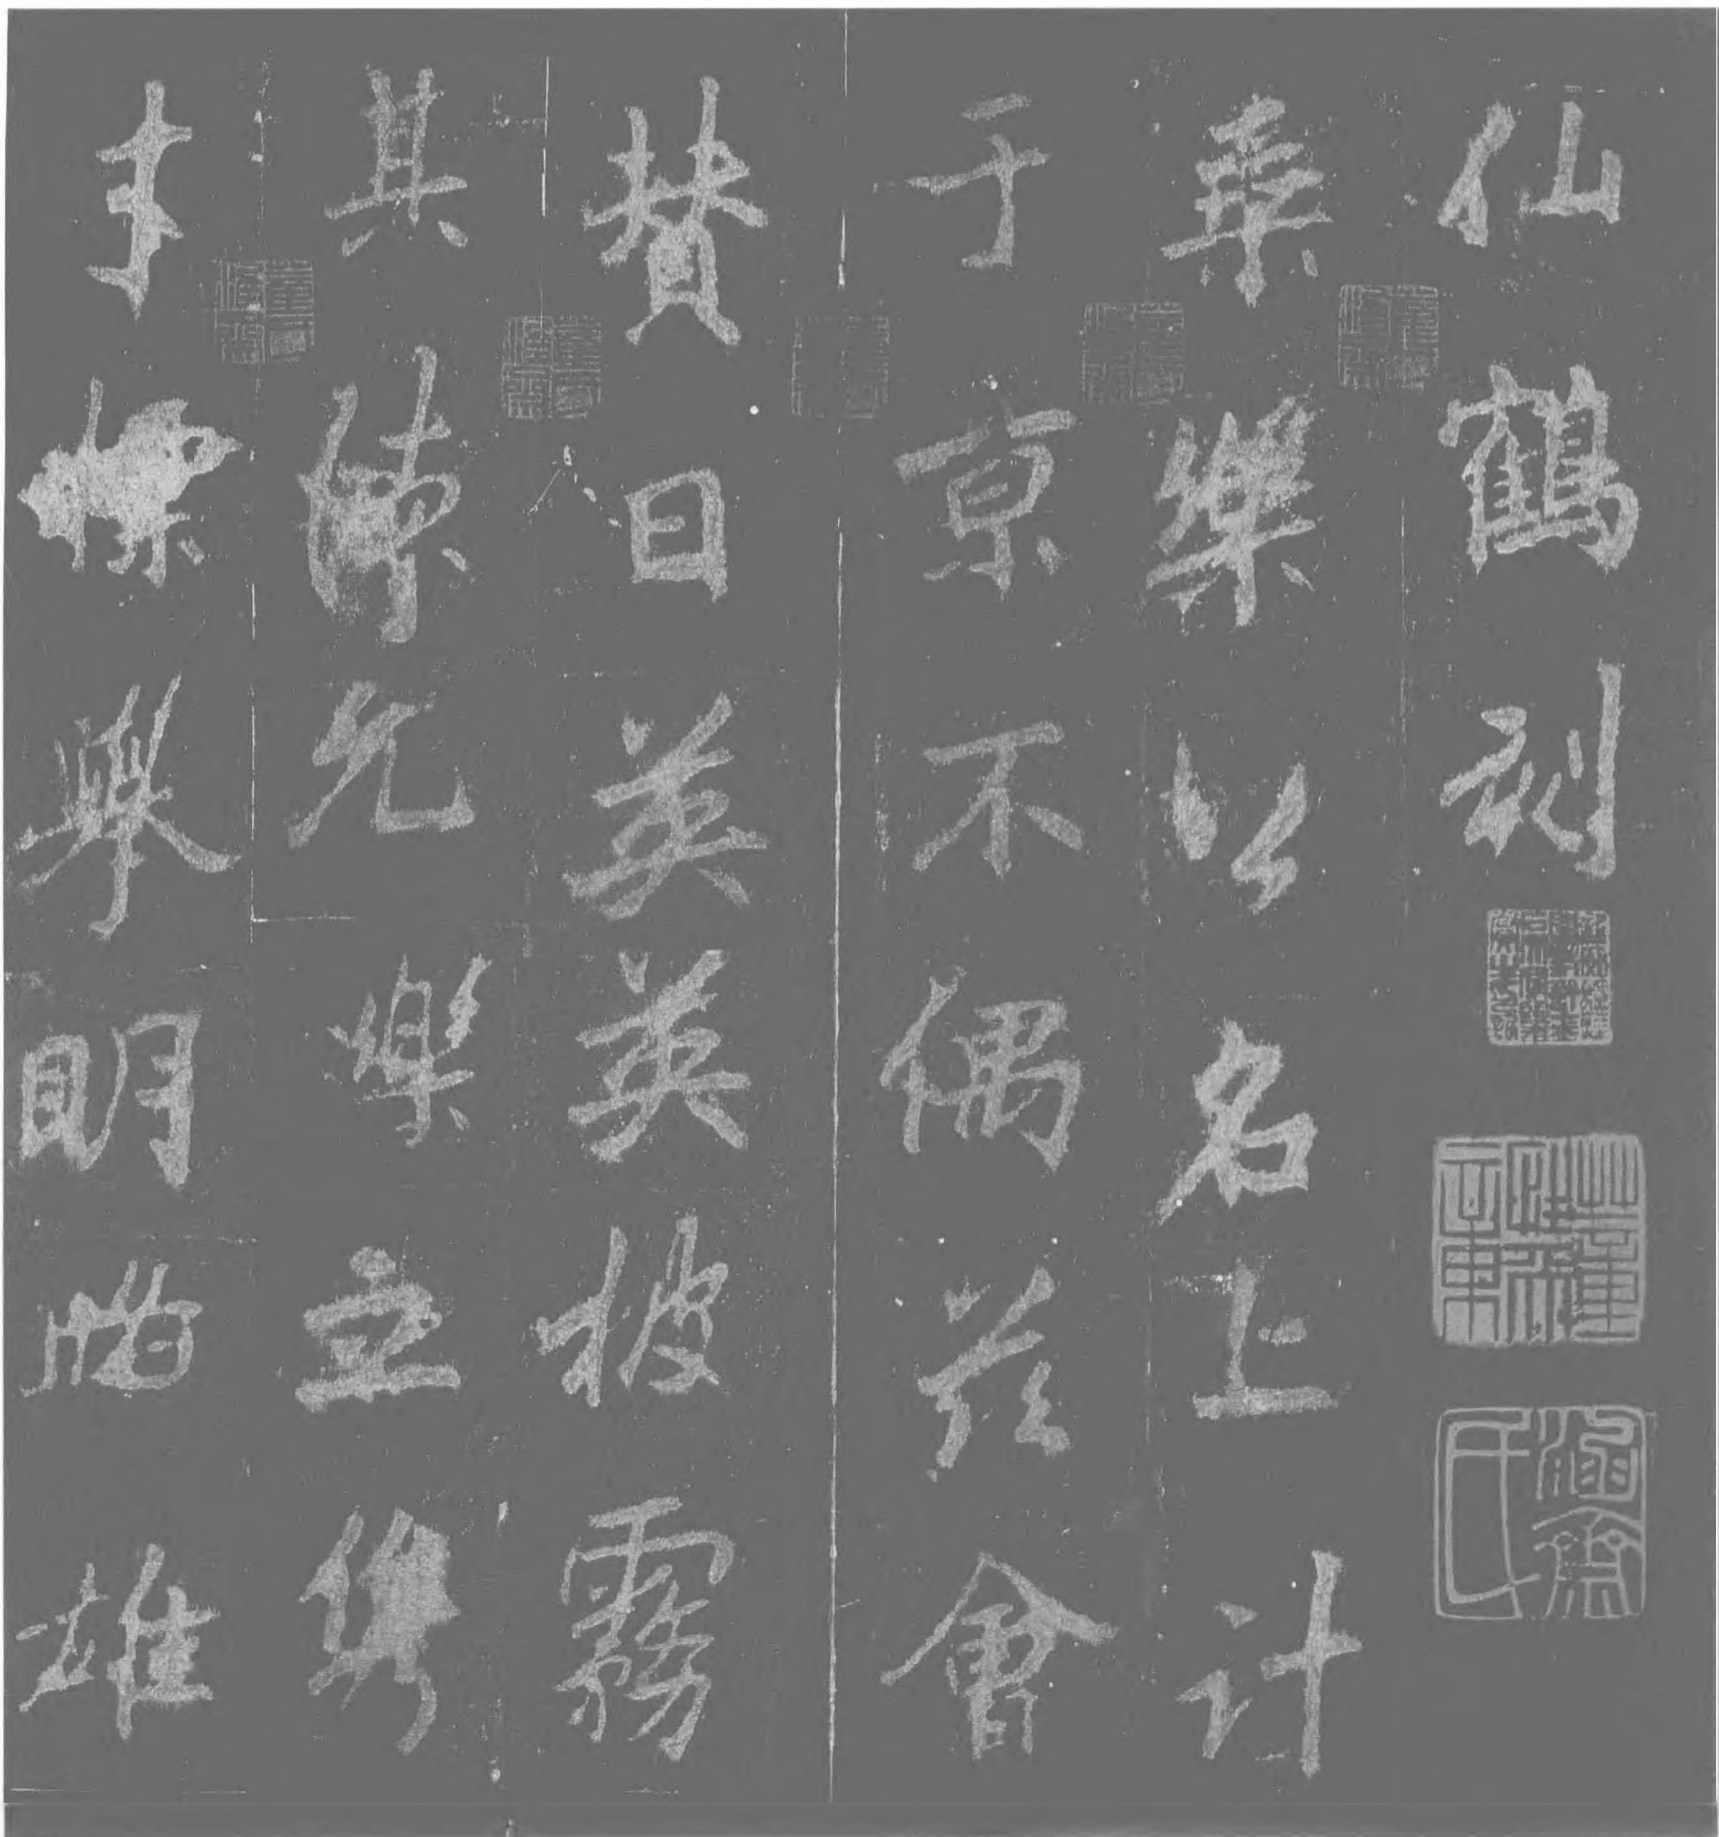 仙鶴刻
乘樂公名上計
于京不偶茲會
贊曰英英披霧
其德允樂立雋
才標舉明略雄